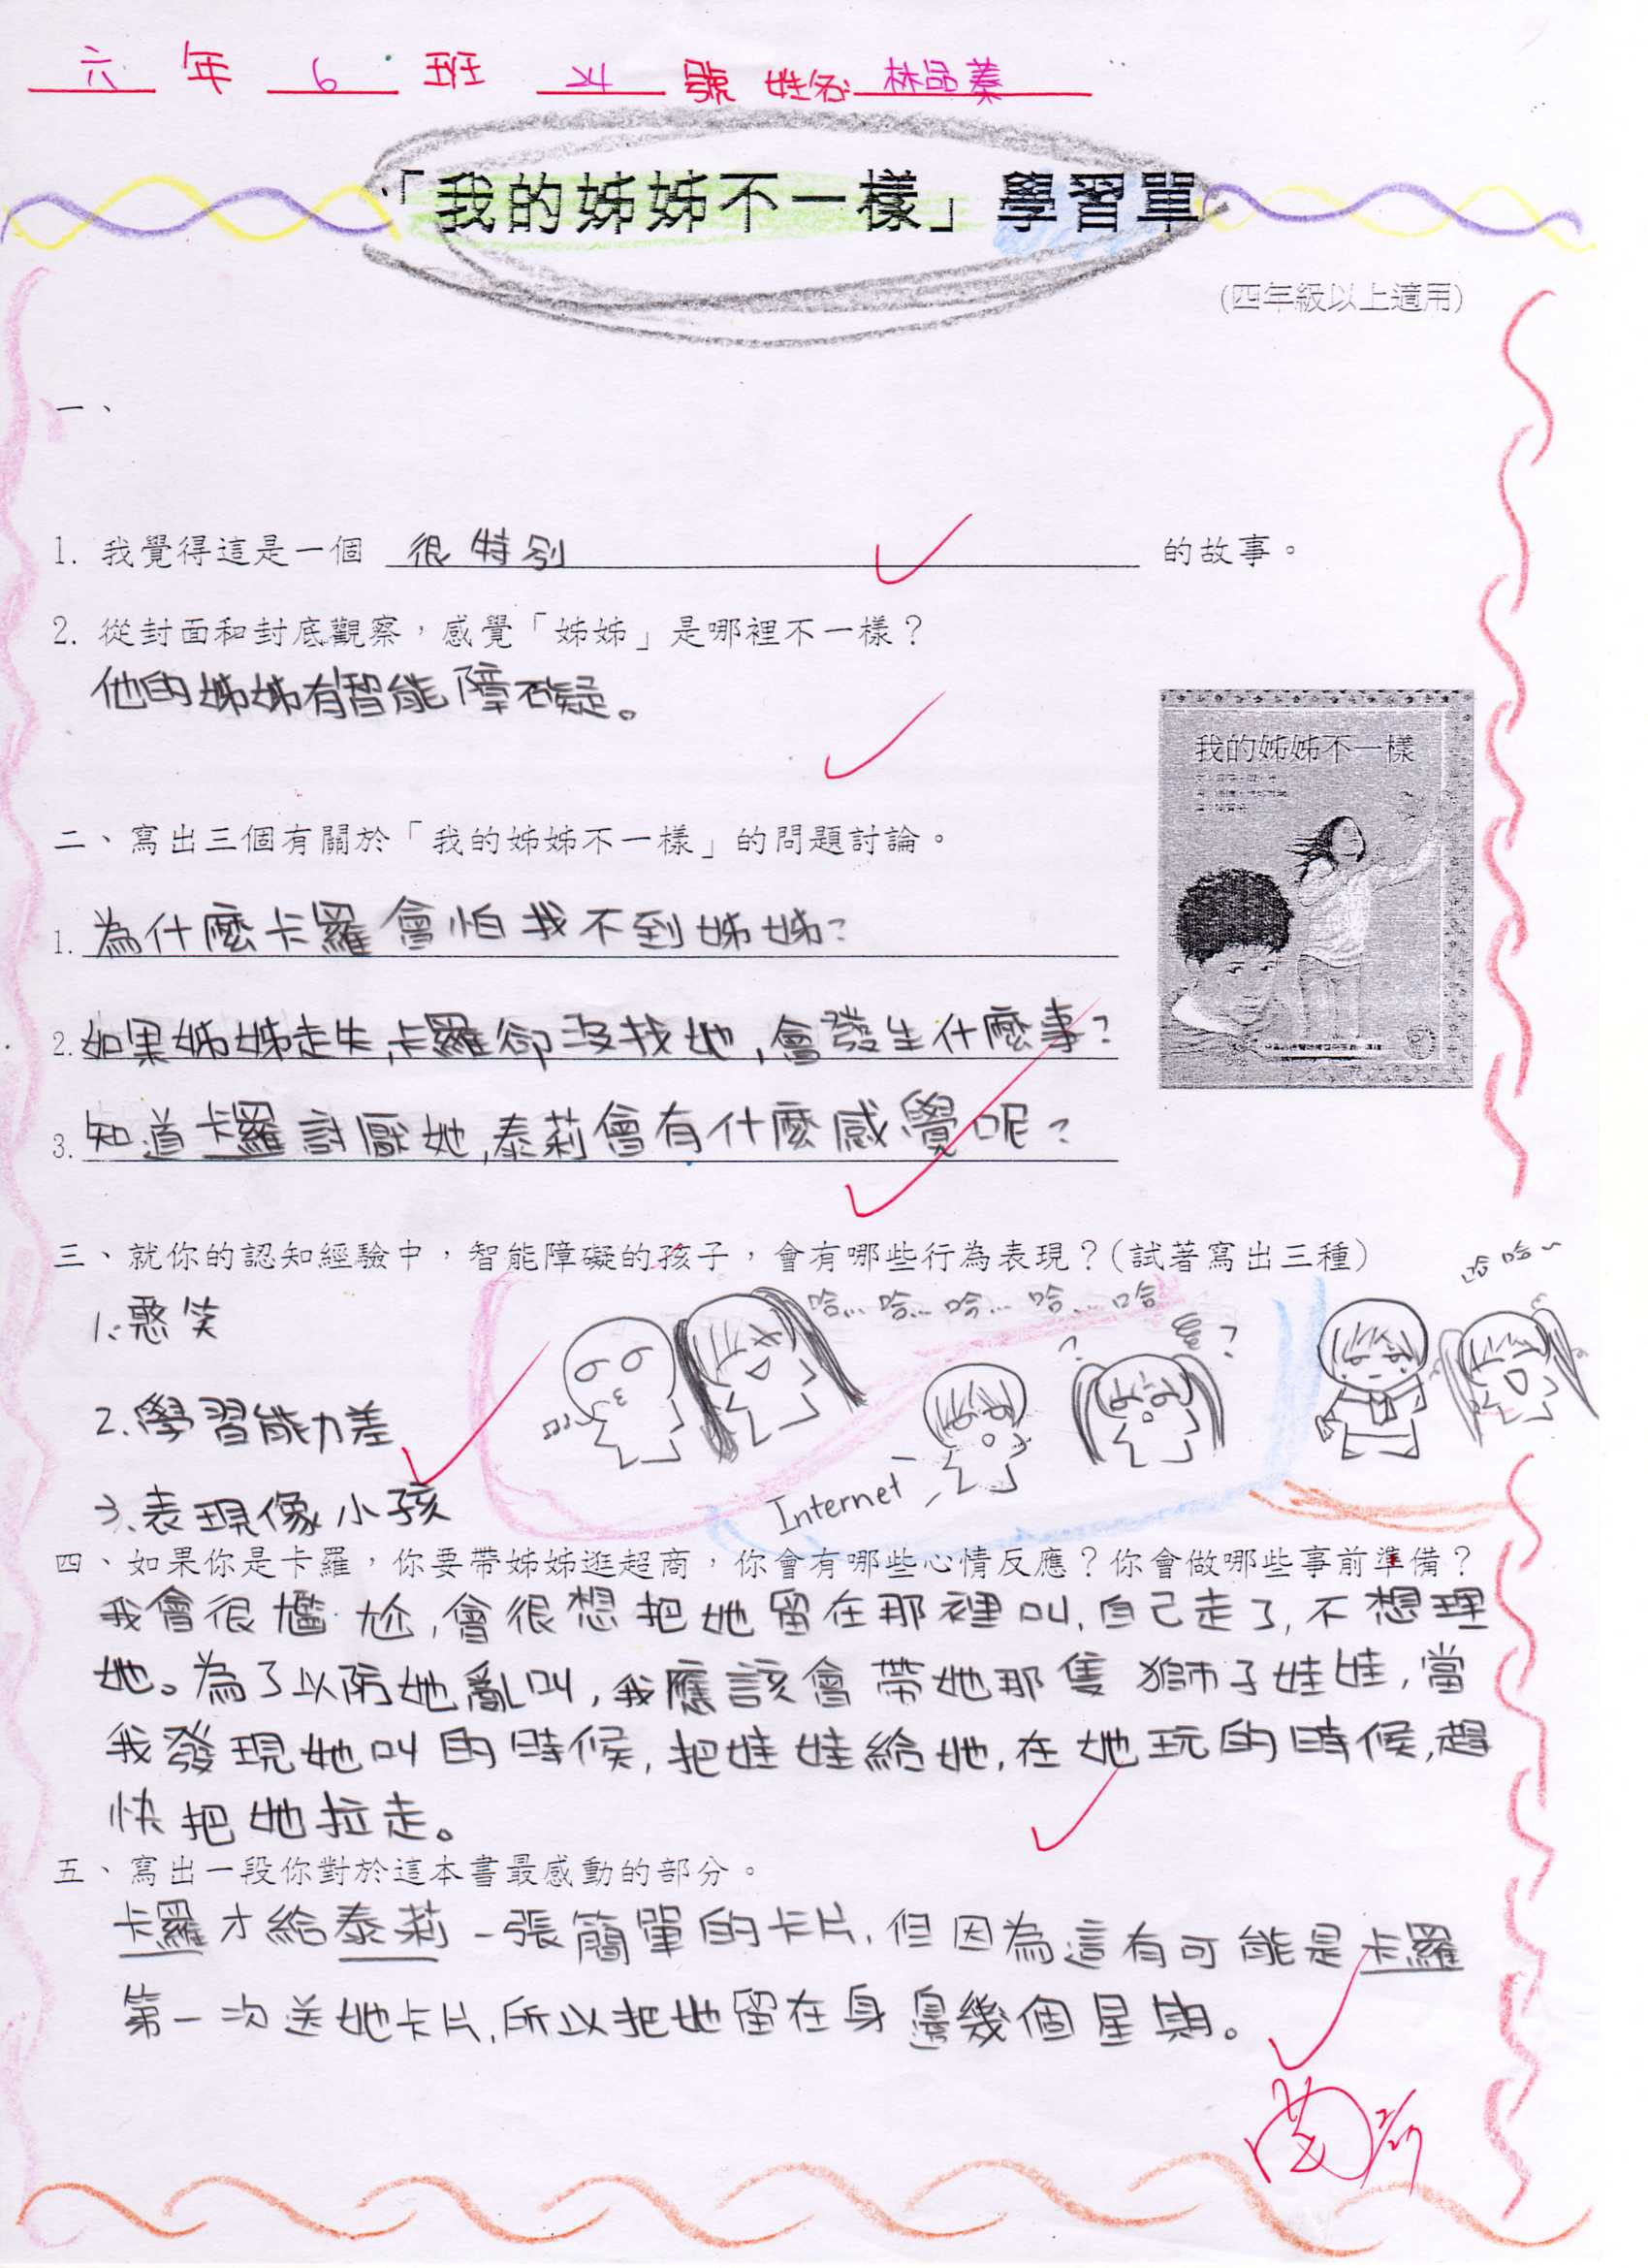 六 年 6 班 24 號 姓名: 林品蓁
「我的姊姊不一樣」學習單
(四年級以上適用)
一、
1. 我覺得這是一個 很特別 的故事。
2. 從封面和封底觀察，感覺「姊姊」是哪裡不一樣？
他的姊姊有智能障礙。
我的姊姊不一樣
二、寫出三個有關於「我的姊姊不一樣」的問題討論。
1. 為什麼卡羅會怕找不到姊姊?
2. 如果姊姊走失,卡羅卻沒找她,會發生什麼事?
3. 知道卡羅討厭她,泰莉會有什麼感覺呢?
三、就你的認知經驗中，智能障礙的孩子，會有哪些行為表現？(試著寫出三種)
哈哈~
1.憨笑
哈...哈...哈...哈...哈
2.學習能力差
Internet
3.表現像小孩
四、如果你是卡羅，你要帶姊姊逛超商，你會有哪些心情反應？你會做哪些事前準備？
我會很尷尬,會很想把她留在那裡叫,自己走了,不想理
她。為了以防她亂叫,我應該會帶她那隻獅子娃娃,當
我發現她叫的時候,把娃娃給她,在她玩的時候,趕
快把她拉走。
五、寫出一段你對於這本書最感動的部分。
卡羅才給泰莉一張簡單的卡片,但因為這有可能是卡羅
第一次送她卡片,所以把她留在身邊幾個星期。